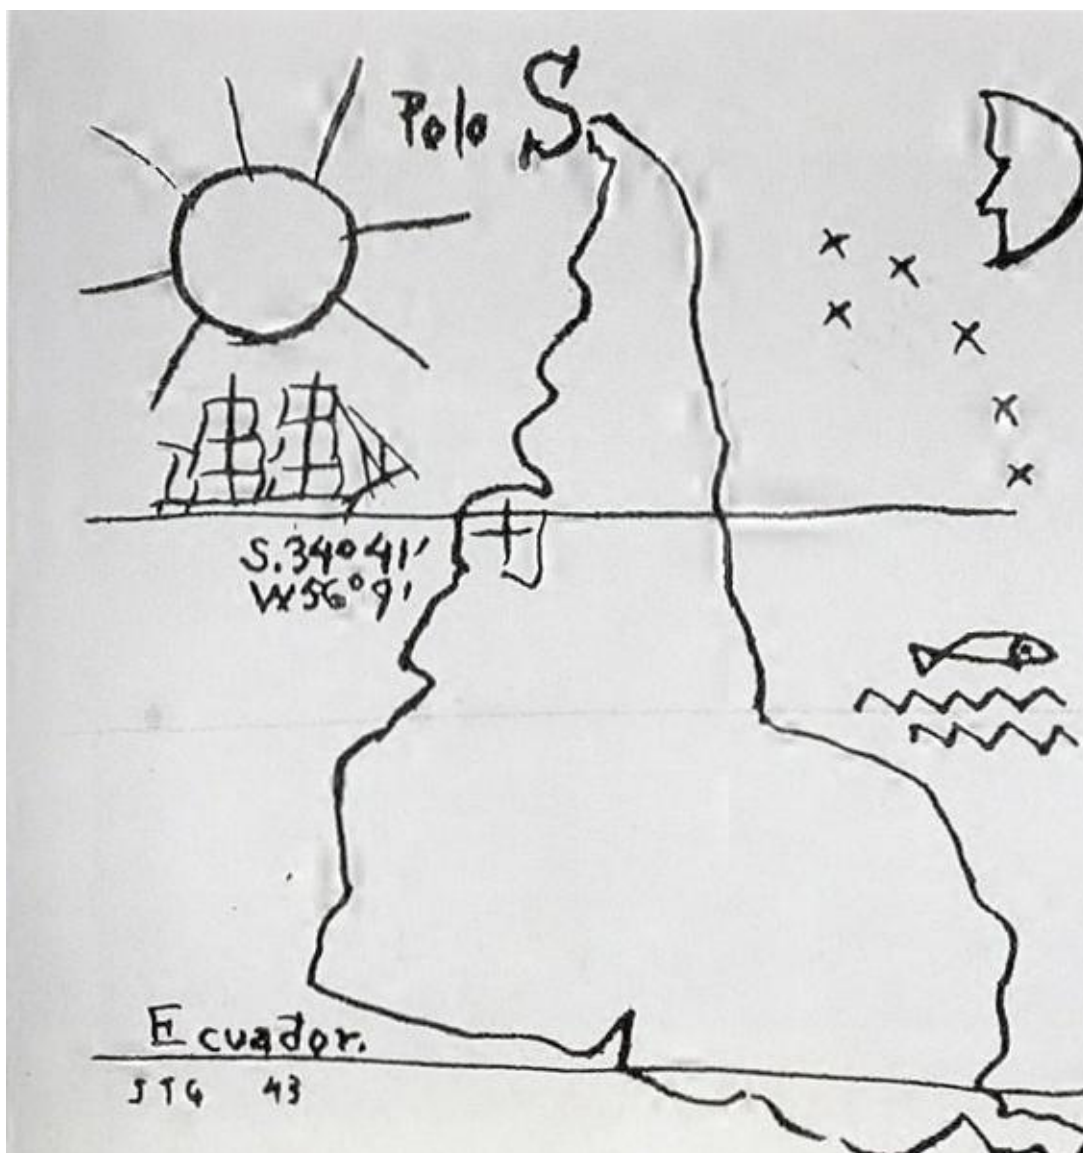 Polo S.
S. 34° 41'
W 56° 9'
Ecuador.
JTG 43